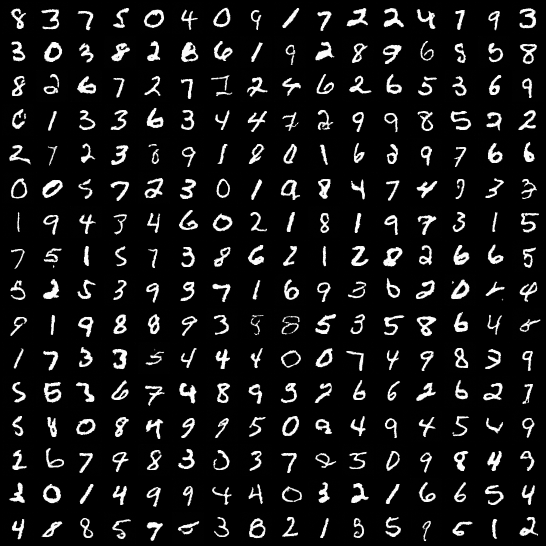 8 3 7 5 0 4 0 9 1 7 2 2 4 7 9 3
3 0 3 8 2 8 6 1 9 2 8 9 6 5 5 8
8 2 6 7 2 7 7 2 4 6 2 6 5 3 6 9
0 1 3 3 6 3 4 4 7 2 9 9 8 5 2 2
2 7 2 3 8 9 1 8 0 1 6 2 9 7 6 6
0 0 5 7 2 3 0 1 9 8 4 7 4 9 3 3
1 9 4 3 4 6 0 2 1 8 1 9 7 3 1 5
7 5 1 5 7 3 8 6 2 1 2 8 2 6 6 5
5 2 5 3 9 9 7 1 6 9 3 6 2 0 4
9 1 9 8 8 9 3 8 5 3 5 8 6 4 8
1 7 3 3 5 4 4 4 0 0 7 4 9 8 3 9
5 5 3 6 7 4 8 9 9 2 6 6 2 6 2 7
5 8 0 8 4 9 9 5 0 9 4 9 4 5 4 9
2 6 7 9 8 3 0 3 7 8 5 0 9 8 4 9
3 0 1 4 9 9 4 4 0 3 2 1 6 6 5 4
4 8 8 5 7 5 3 8 2 1 3 5 9 5 1 2